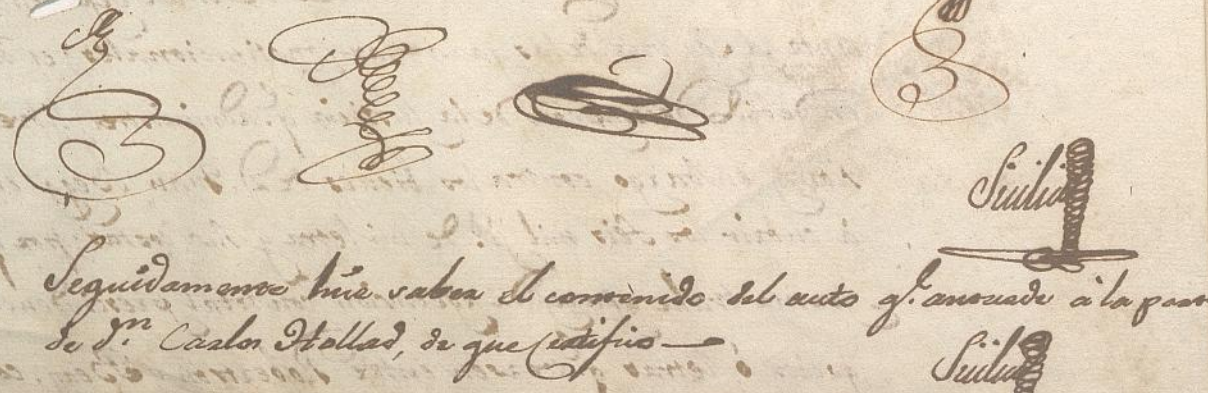 Sicilia
Seguidamente hise saber el contenido del auto q.^e antecede à la part
de d.^n Carlos Hollad, de que certifico
Sicilia